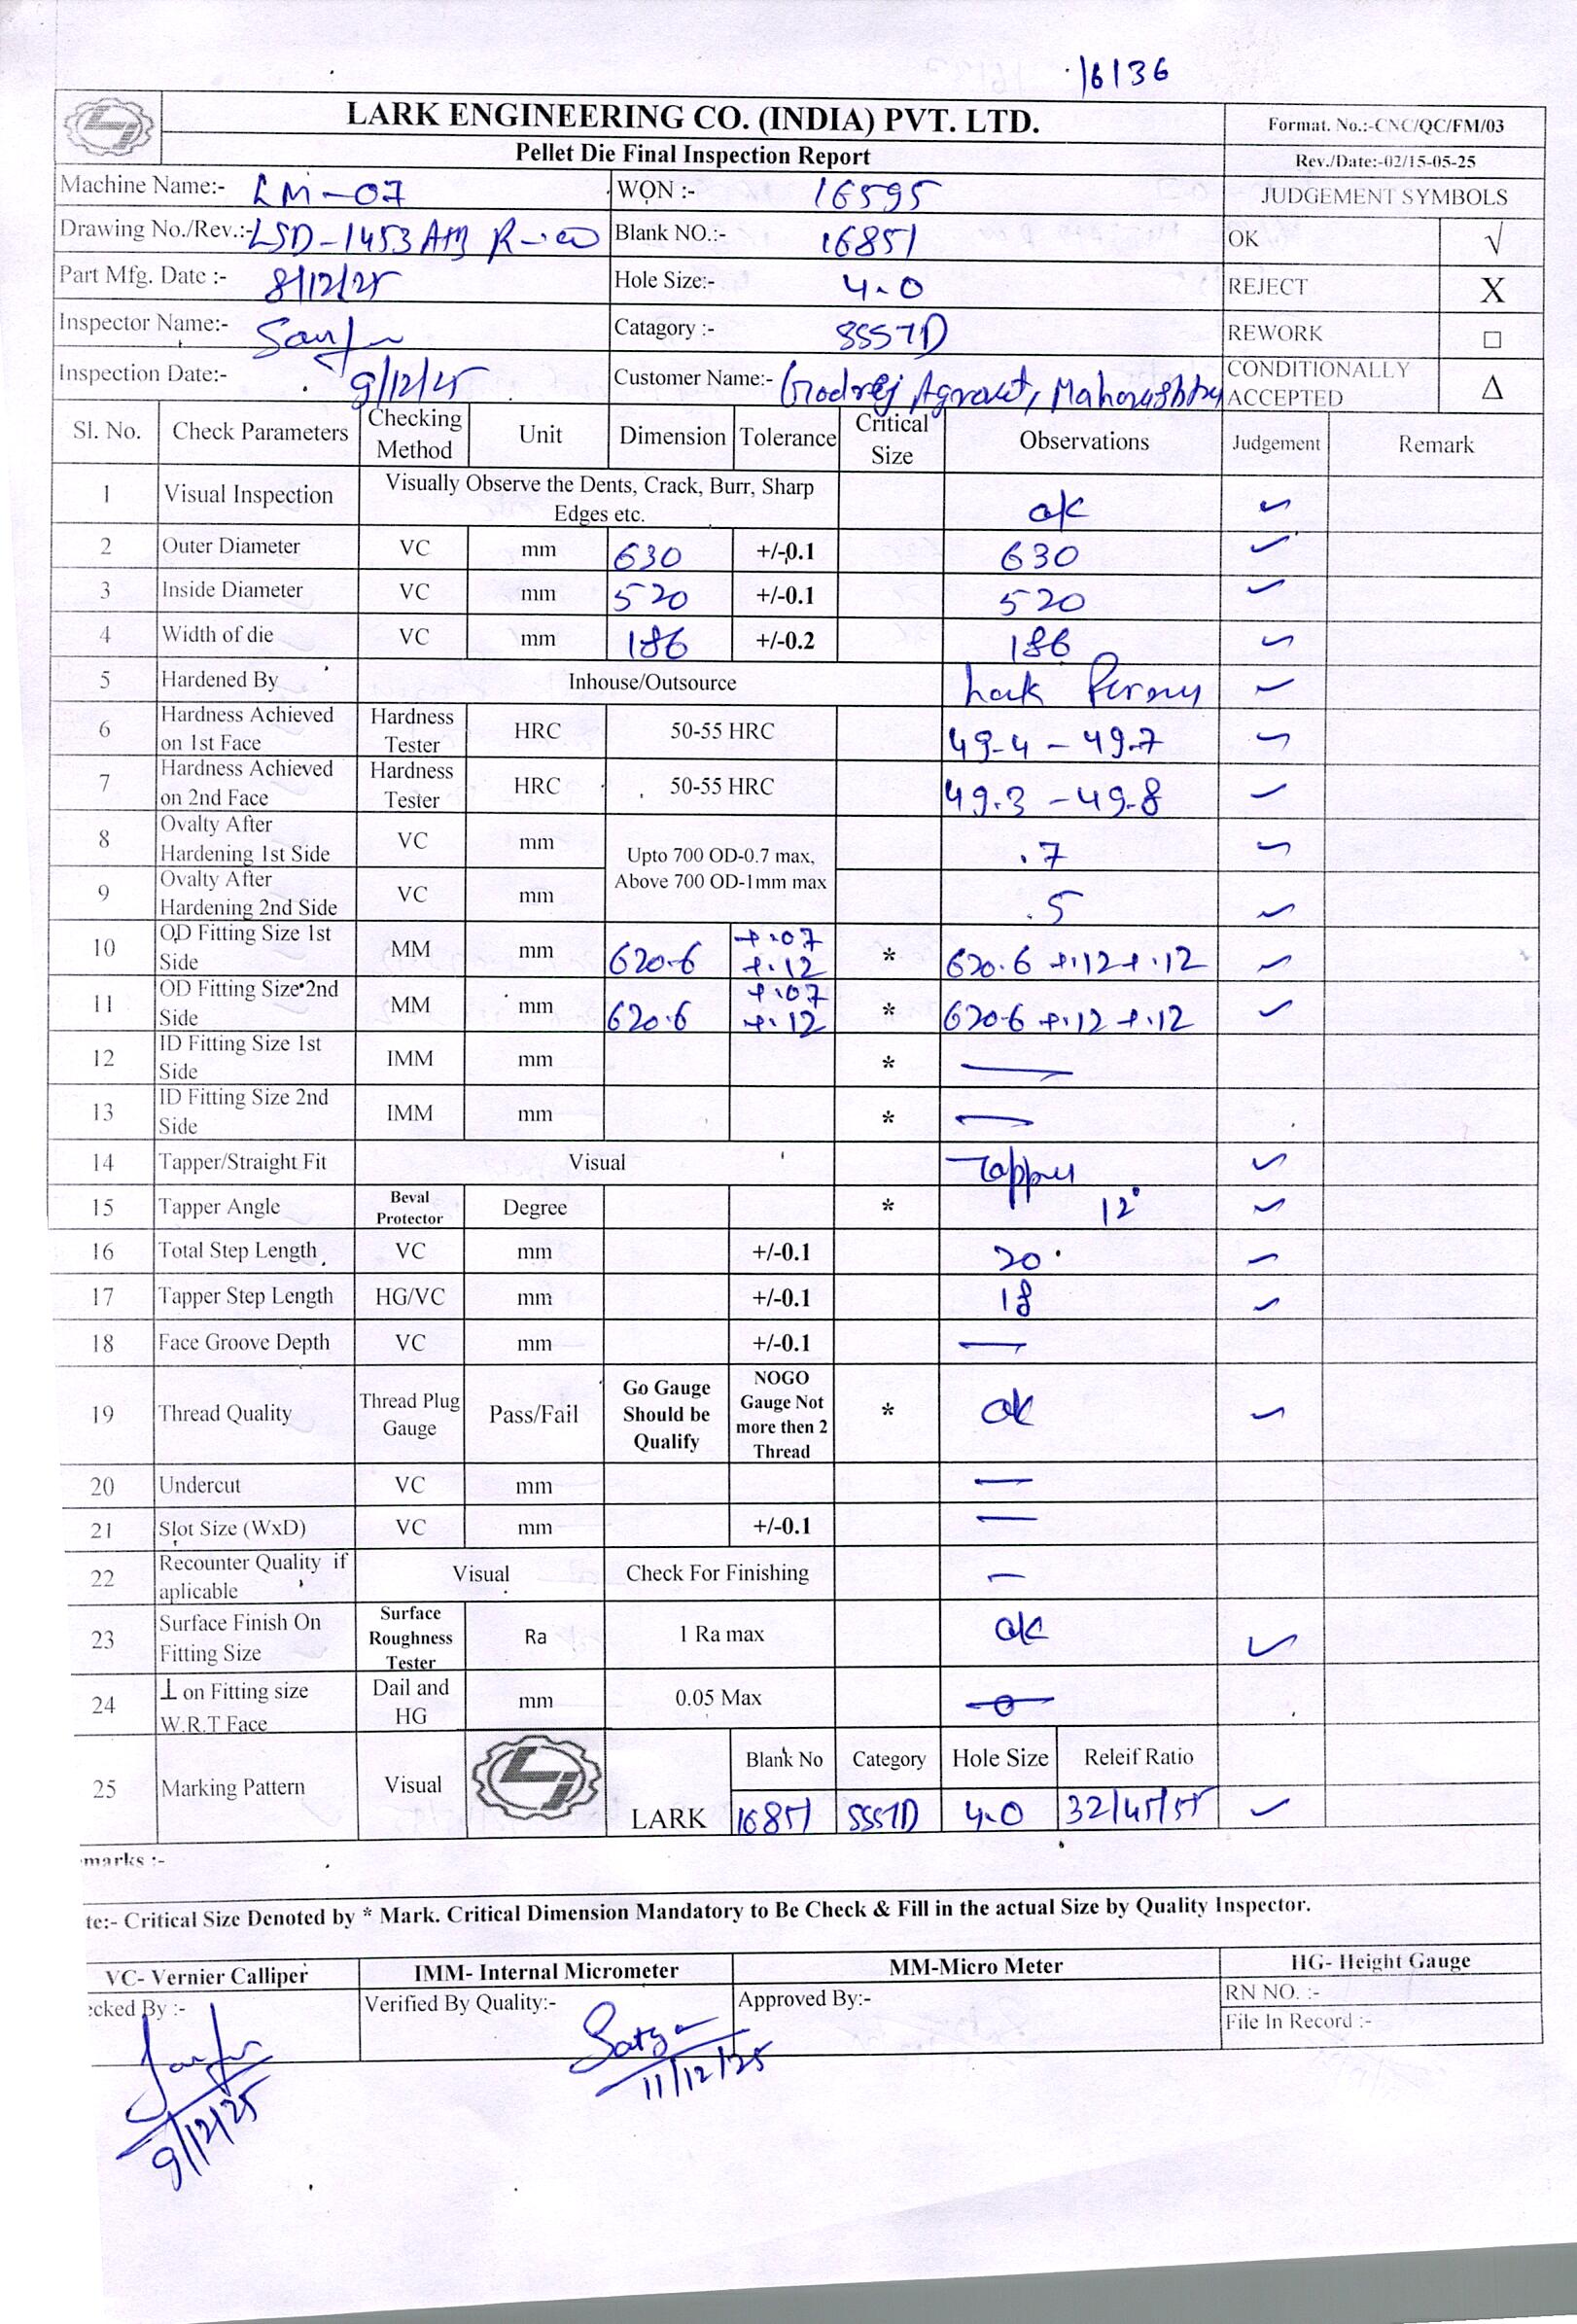 16136
LARK ENGINEERING CO. (INDIA) PVT. LTD.
Format. No.:-CNC/QC/FM/03
Pellet Die Final Inspection Report
Rev./Date:-02/15-05-25
Machine Name:- LM-07 WON :- 16595 JUDGEMENT SYMBOLS
Drawing No./Rev.:- LSD-1453 AM R-00 Blank NO.:- 16851 OK √
Part Mfg. Date :- 8/12/25 Hole Size:- 4.0 REJECT X
Inspector Name:- Catagory :- SSS7D REWORK □
Inspection Date:- 9/12/25 Customer Name:- Godrej Agrovet, Maharashtra CONDITIONALLY ACCEPTED Δ
Sl. No. Check Parameters Checking Method Unit Dimension Tolerance Critical Size Observations Judgement Remark
1 Visual Inspection Visually Observe the Dents, Crack, Burr, Sharp Edges etc. ok ✓
2 Outer Diameter VC mm 630 +/-0.1 630 ✓
3 Inside Diameter VC mm 520 +/-0.1 520 ✓
4 Width of die VC mm 186 +/-0.2 186 ✓
5 Hardened By Inhouse/Outsource Lark ✓
6 Hardness Achieved on 1st Face Hardness Tester HRC 50-55 HRC 49.4 - 49.7 ✓
7 Hardness Achieved on 2nd Face Hardness Tester HRC 50-55 HRC 49.3 - 49.8 ✓
8 Ovalty After Hardening 1st Side VC mm Upto 700 OD-0.7 max, Above 700 OD-1mm max .7 ✓
9 Ovalty After Hardening 2nd Side VC mm .5 ✓
10 OD Fitting Size 1st Side MM mm 620.6 +.07 +.12 * 620.6 +.12 +.12 ✓
11 OD Fitting Size 2nd Side MM mm 620.6 +.07 +.12 * 620.6 +.12 +.12 ✓
12 ID Fitting Size 1st Side IMM mm * —
13 ID Fitting Size 2nd Side IMM mm * —
14 Tapper/Straight Fit Visual Tapper ✓
15 Tapper Angle Beval Protector Degree * 12° ✓
16 Total Step Length VC mm +/-0.1 20 ✓
17 Tapper Step Length HG/VC mm +/-0.1 18 ✓
18 Face Groove Depth VC mm +/-0.1 —
19 Thread Quality Thread Plug Gauge Pass/Fail Go Gauge Should be Qualify NOGO Gauge Not more then 2 Thread * ok ✓
20 Undercut VC mm —
21 Slot Size (WxD) VC mm +/-0.1 —
22 Recounter Quality if aplicable Visual Check For Finishing —
23 Surface Finish On Fitting Size Surface Roughness Tester Ra 1 Ra max ok ✓
24 ⊥ on Fitting size W.R.T Face Dail and HG mm 0.05 Max
25 Marking Pattern Visual LARK Blank No Category Hole Size Releif Ratio
16851 SSS7D 4.0 32/45/55 ✓
marks :-
te:- Critical Size Denoted by * Mark. Critical Dimension Mandatory to Be Check & Fill in the actual Size by Quality Inspector.
VC- Vernier Calliper IMM- Internal Micrometer MM-Micro Meter HG- Height Gauge
ecked By :- Verified By Quality:- Approved By:- RN NO. :-
File In Record :-
Satya
11/12/25
9/12/25